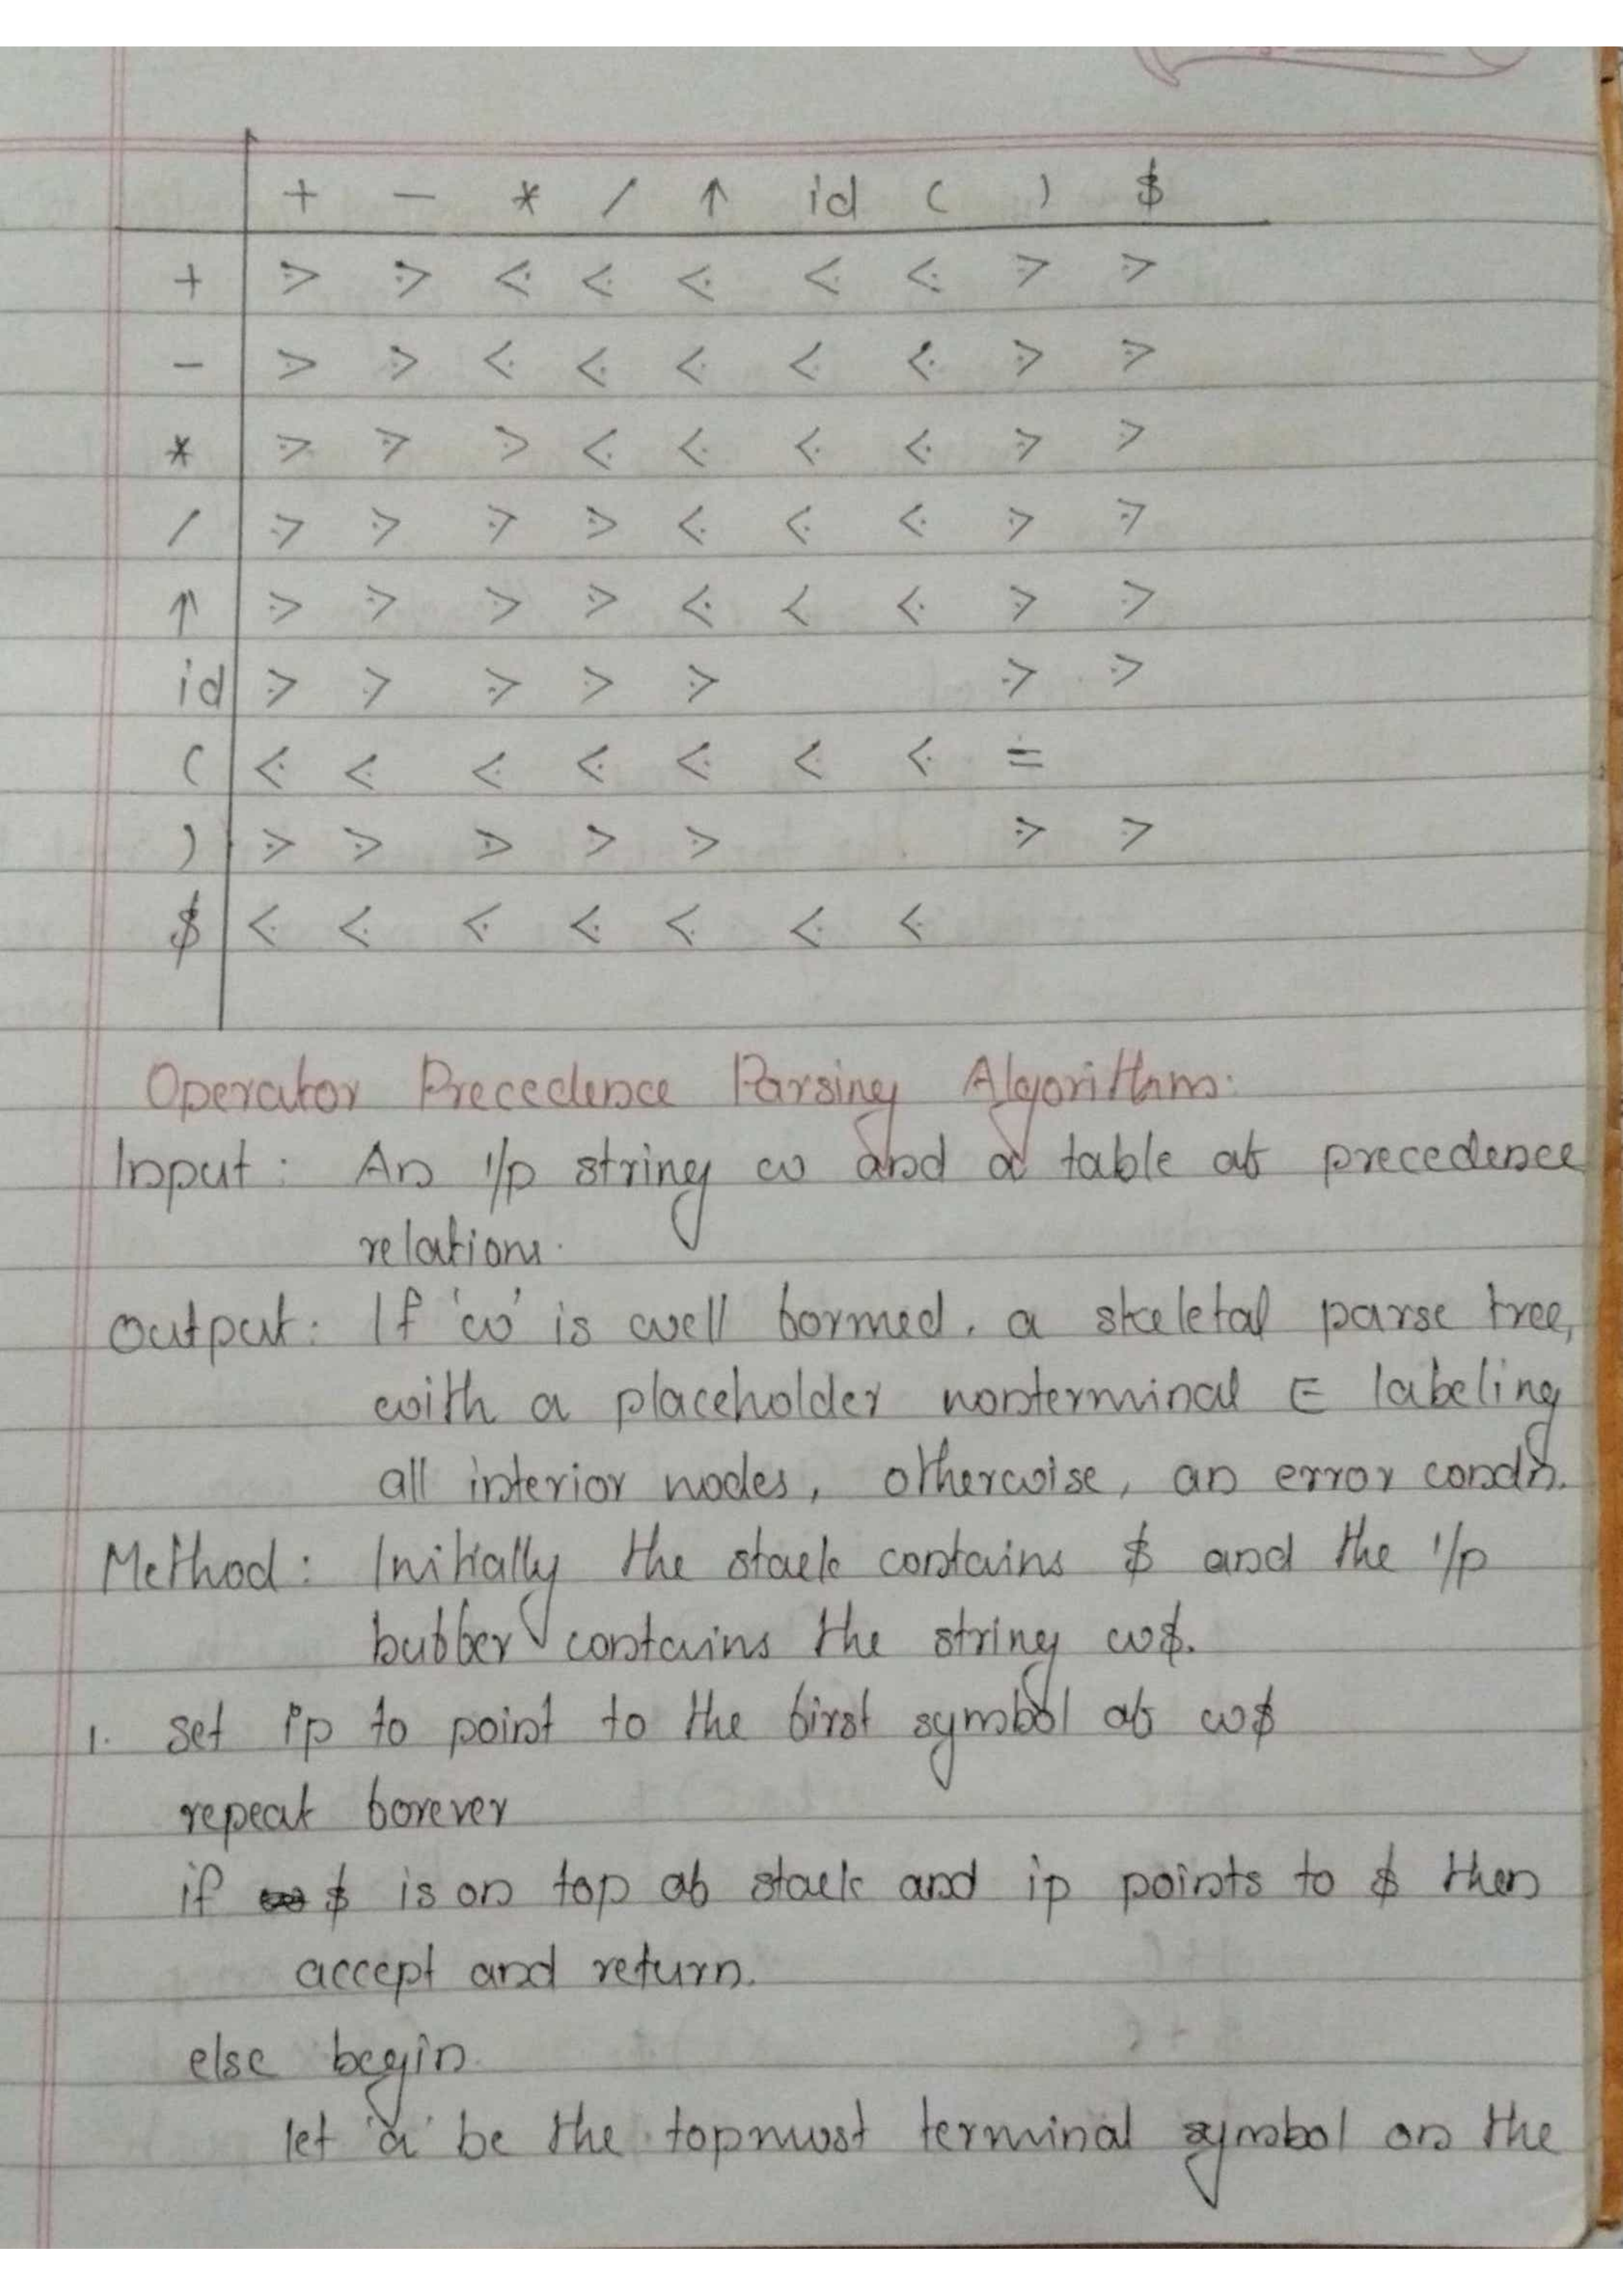 + - * / ↑ id ( ) $
+ ⋗ ⋗ ⋖ ⋖ ⋖ ⋖ ⋖ ⋗ ⋗
- ⋗ ⋗ ⋖ ⋖ ⋖ ⋖ ⋖ ⋗ ⋗
* ⋗ ⋗ ⋗ ⋖ ⋖ ⋖ ⋖ ⋗ ⋗
/ ⋗ ⋗ ⋗ ⋗ ⋖ ⋖ ⋖ ⋗ ⋗
↑ ⋗ ⋗ ⋗ ⋗ ⋖ ⋖ ⋖ ⋗ ⋗
id ⋗ ⋗ ⋗ ⋗ ⋗ ⋗ ⋗
( ⋖ ⋖ ⋖ ⋖ ⋖ ⋖ ⋖ ≐
) ⋗ ⋗ ⋗ ⋗ ⋗ ⋗ ⋗
$ ⋖ ⋖ ⋖ ⋖ ⋖ ⋖ ⋖
Operator Precedence Parsing Algorithm:
Input: An i/p string w and a table of precedence
relations.
Output: If 'w' is well formed, a skeletal parse tree,
with a placeholder nonterminal E labeling
all interior nodes, otherwise, an error condn.
Method: Initially the stack contains $ and the i/p
buffer contains the string w$.
1. set ip to point to the first symbol of w$
repeat forever
if $ is on top of stack and ip points to $ then
accept and return.
else begin
let 'a' be the topmost terminal symbol on the